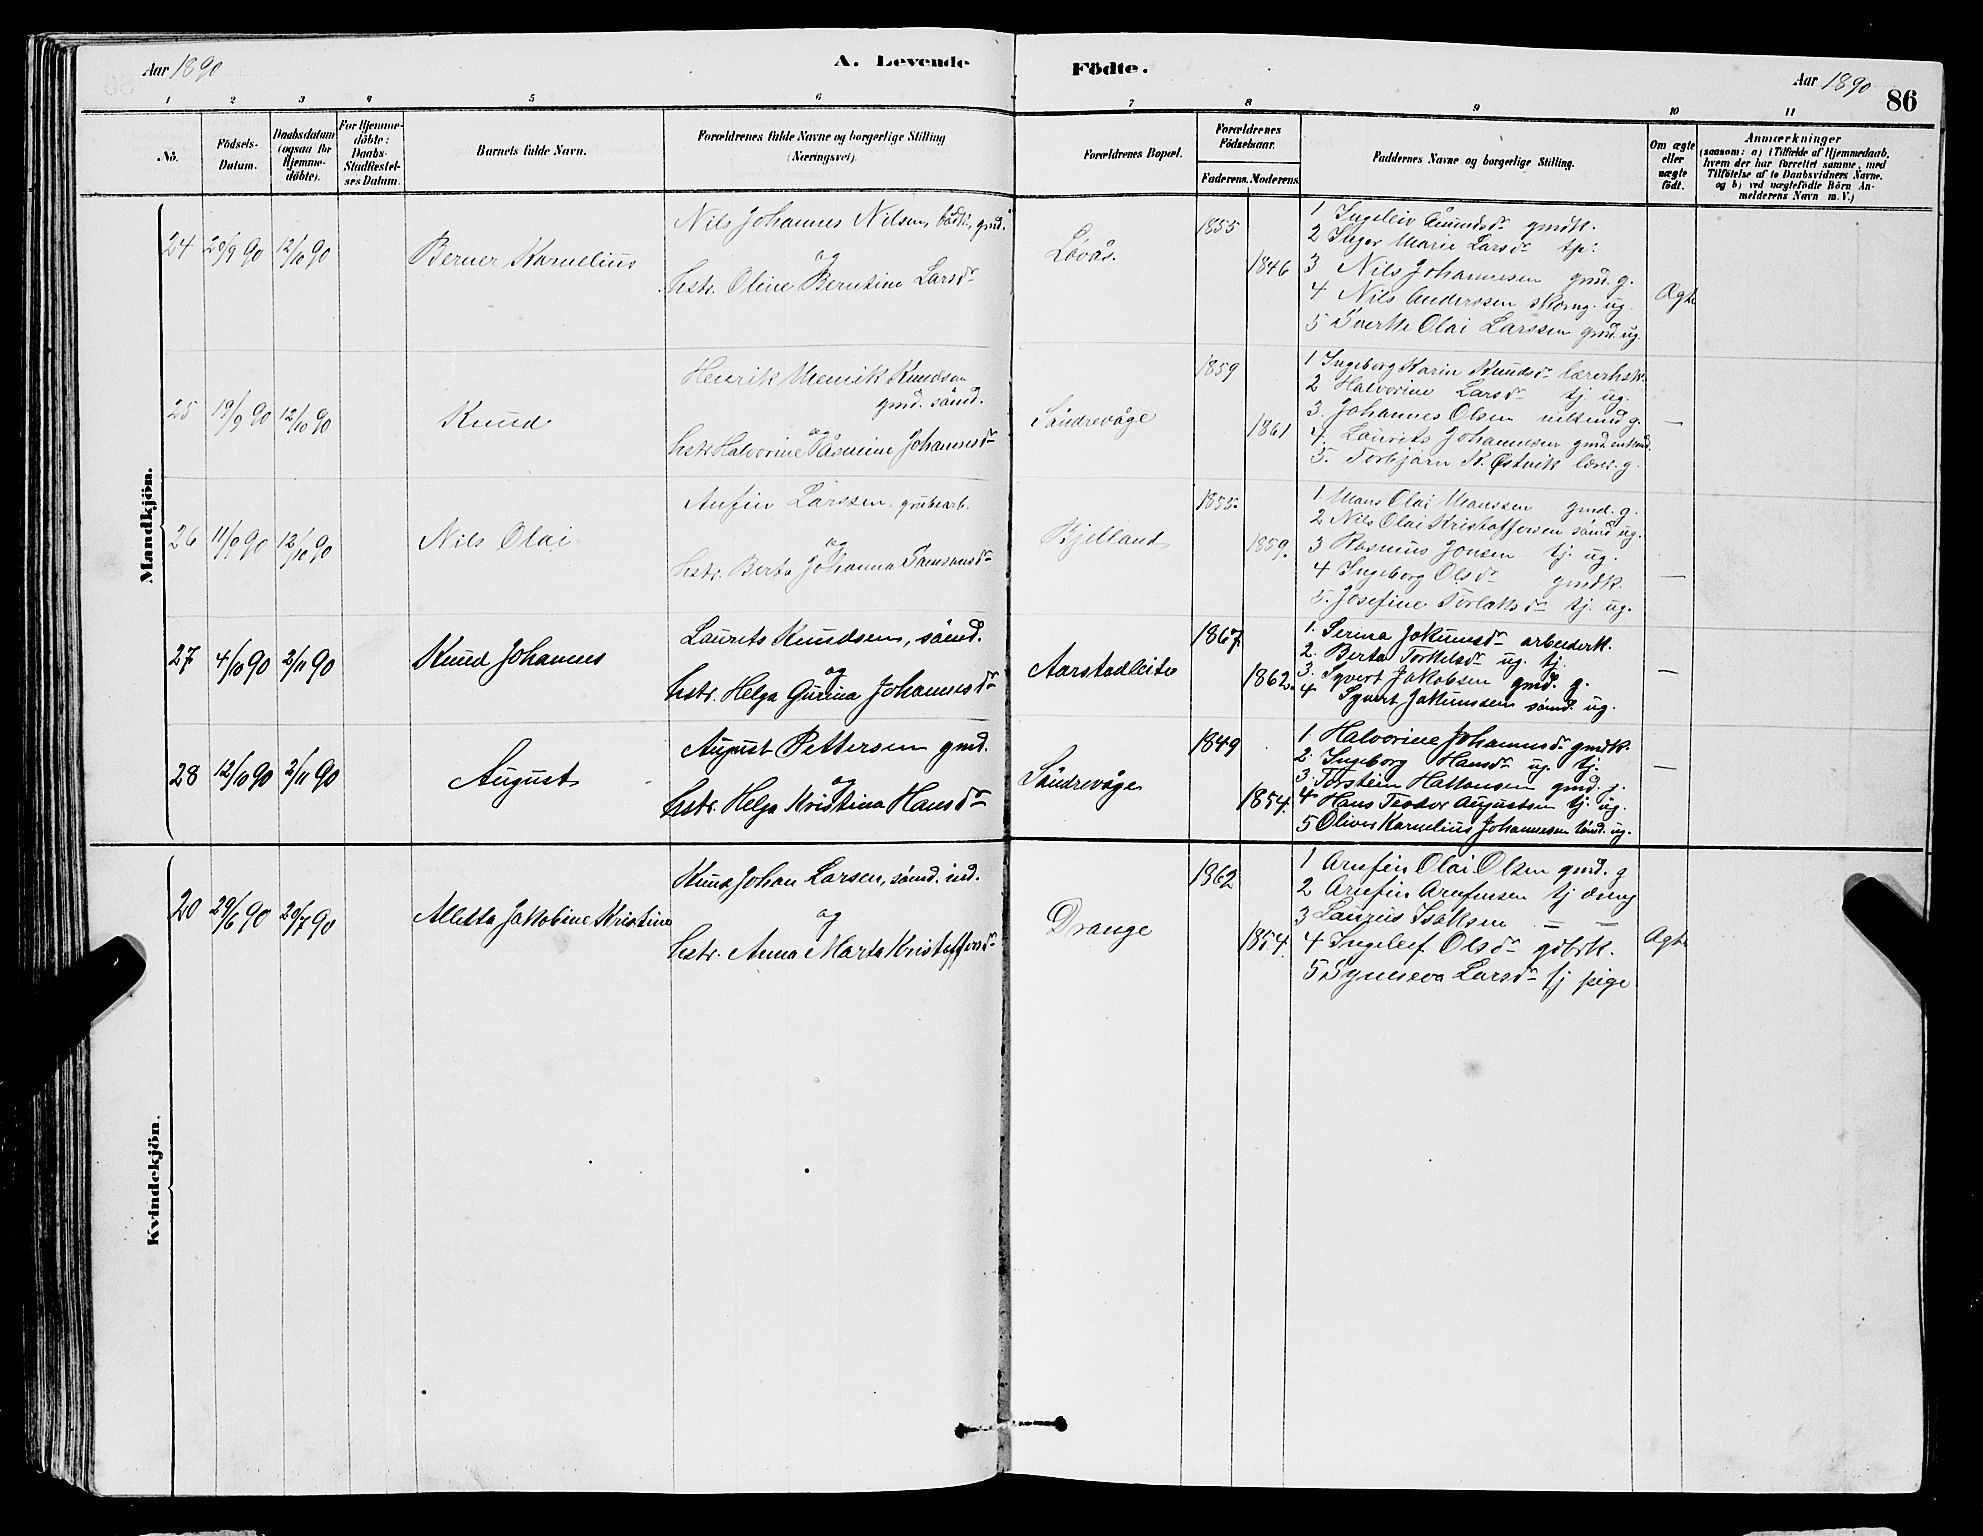 Aar 1890
A. Levende
Födte.
Aar 1890
86
1 2 3 4 5 6 7 8 9 10 11
No.
Födsels-
Datum.
Daabsdatum
(ogsaa for
Hjemme-
döbte).
For Hjemme-
döbte:
Daabs-
Stadfæstel-
ses Datum.
Barnets fulde Navn.
Forældrenes fulde Navne og borgerlige Stilling
(Næringsvei).
Forældrenes Bopæl.
Forældrenes
Födselsaar.
Faderens. Moderens.
Faddernes Navne og borgerlige Stilling.
Om ægte
eller
uægte
födt.
Anmærkninger
(saasom: a) i Tilfælde af Hjemmedaab,
hvem der har forrettet samme, med
Tilföielse af to Daabsvidners Navne,
og b) ved uægtefödte Börn An-
melderens Navn m. V.)
Mandkjön.
24 29/9 90 12/10 90
Berner Kornelius
Nils Johannes Nilsen, gmd.
og
hstr. Oline Berntine Larsdr
Løvås.
1855
1846
1 Ingeleiv gmdk.
2 Inger Marie Larsdr tj.
3 Nils Johannesen gmd. g.
4 Nils Anderssen ug.
5 Sverke Olai Larssen gmd. ug.
Ægte
25 19/9 90 12/10 90
Knud
Henrik Menik Knudsen
gmd. sömd.
og
hstr. Halvorine Johannesdr
Söndrevåge
1859
1861
1 Ingeborg Karin Knudsdr
2 Halvorine Larsdr tj. ug.
3. Johannes Olsen g.
4. Laurits Johannesen gmd.
5. Torbjørn K. Østvik lærer. g.
—
26 11/9 90 12/10 90
Nils Olai
Anfin Larssen, grubearb.
og
hstr. Berta Johanna Samsonsdr
Bjelland
1855.
1859.
1 Mons Olai Monssen gmd. g.
2 Nils Olai Kristoffersen sömd ug.
3 Rasmus Jonsen tj. ug.
4 Ingeborg Olsdr gmdk.
5. Josefine Torlaksdr tj. ug.
—
27 4/10 90 2/11 90
Knud Johannes
Laurits Knudsen, sömd.
og
hstr. Helga Gurina Johannesdr
Aarstadleite
1867.
1862.
1. Serina Jokumsdr arbeiderk.
2. Berta Torkelsdr ug. tj.
3. Syvert Jakobsen gmd. g.
4 Syvert Jokumssen sömd. ug.
—
28 12/10 90 2/11 90
August
August Pettersen gmd.
og
hstr. Helga Kristina Hansdr
Söndrevåge
1849
1854.
1. Halvorine Johannesdr gmdk.
2. Ingeborg Hansdr ug. tj.
3. Torstein Haktonsen gmd. g.
4 Hans Teodor Augustsen tj. ug.
5 Oliver Kornelius Johannesen sömd. ug.
—
Kvindekjön.
20 29/6 90 20/7 90
Alletta Jakobine Kristine
Knud Johan Larsen, sömd. ind.
og
hstr. Anna Marta Kristoffersdr
Drange
1862
1854.
1 Arnfin Olai Olsen gmd. g
2 Arnfin Arnfinsen tj dreng
3 Laurits Isaksen — —
4 Ingeleif Olsdr gdbrk.
5 Synneva Larsdr tj pige
Ægte